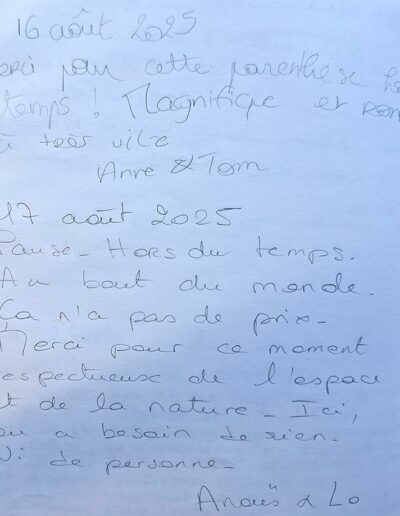 16 août 2025
erci pour cette parenthese h
temps ! Magnifique et
à très vite
Anne & Tom
17 août 2025
Pause - Hors du temps.
Au bout du monde.
Ça n'a pas de prix -
Merci pour ce moment
espectueux de l'espace
t de la nature - Ici,
ou a besoin de rien.
Ni de personne -
Anaïs & Lo